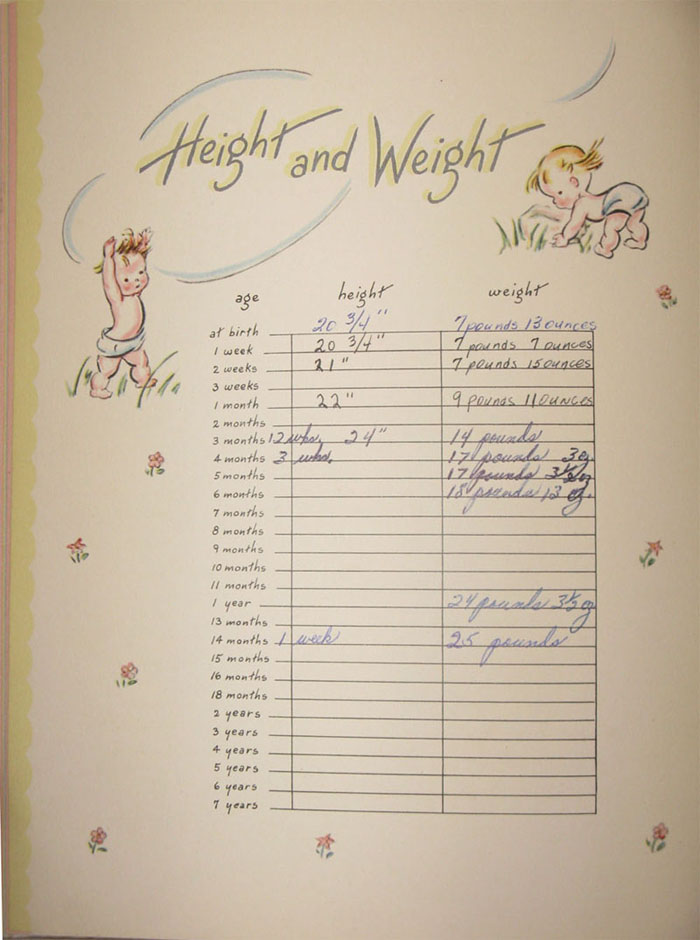 Height and Weight
age height weight
at birth 20 3/4" 7 pounds 13 ounces
1 week 20 3/4" 7 pounds 7 ounces
2 weeks 21" 7 pounds 15 ounces
3 weeks
1 month 22" 9 pounds 11 ounces
2 months
3 months 12 wks. 24" 14 pounds
4 months 3 wks. 17 pounds 3 oz.
5 months 17 pounds 3½ oz
6 months 18 pounds 13 oz.
7 months
8 months
9 months
10 months
11 months
1 year 24 pounds 3½ oz
13 months
14 months 1 week 25 pounds
15 months
16 months
18 months
2 years
3 years
4 years
5 years
6 years
7 years